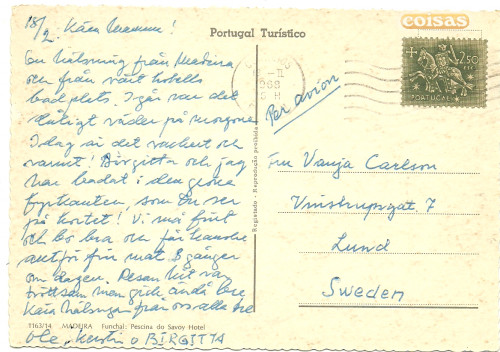 18/2. Kära Mamma!
En hälsning från Madeira
och från vårt hotells
badplats. I går var det
dåligt väder på morgonen
I dag är det vackert och
varmt! Birgitta och jag
har badat i den
som Du ser
på kortet! Vi må fint
och bo bra och får kanske
för mat 3 gånger
om dagen. Resan hit var
tröttsam men gick ändå bra
Kära hälsningar från oss alla tre
Olle, Kerstin o BIRGITTA
1163/14 MADEIRA Funchal: Pescina do Savoy Hotel
Portugal Turístico
Registado - Reprodução proibida
coisas
2$50
PORTUGAL
Par avion
Fru Vanja Carlson
Vinstrupsgat. 7
Lund
Sweden